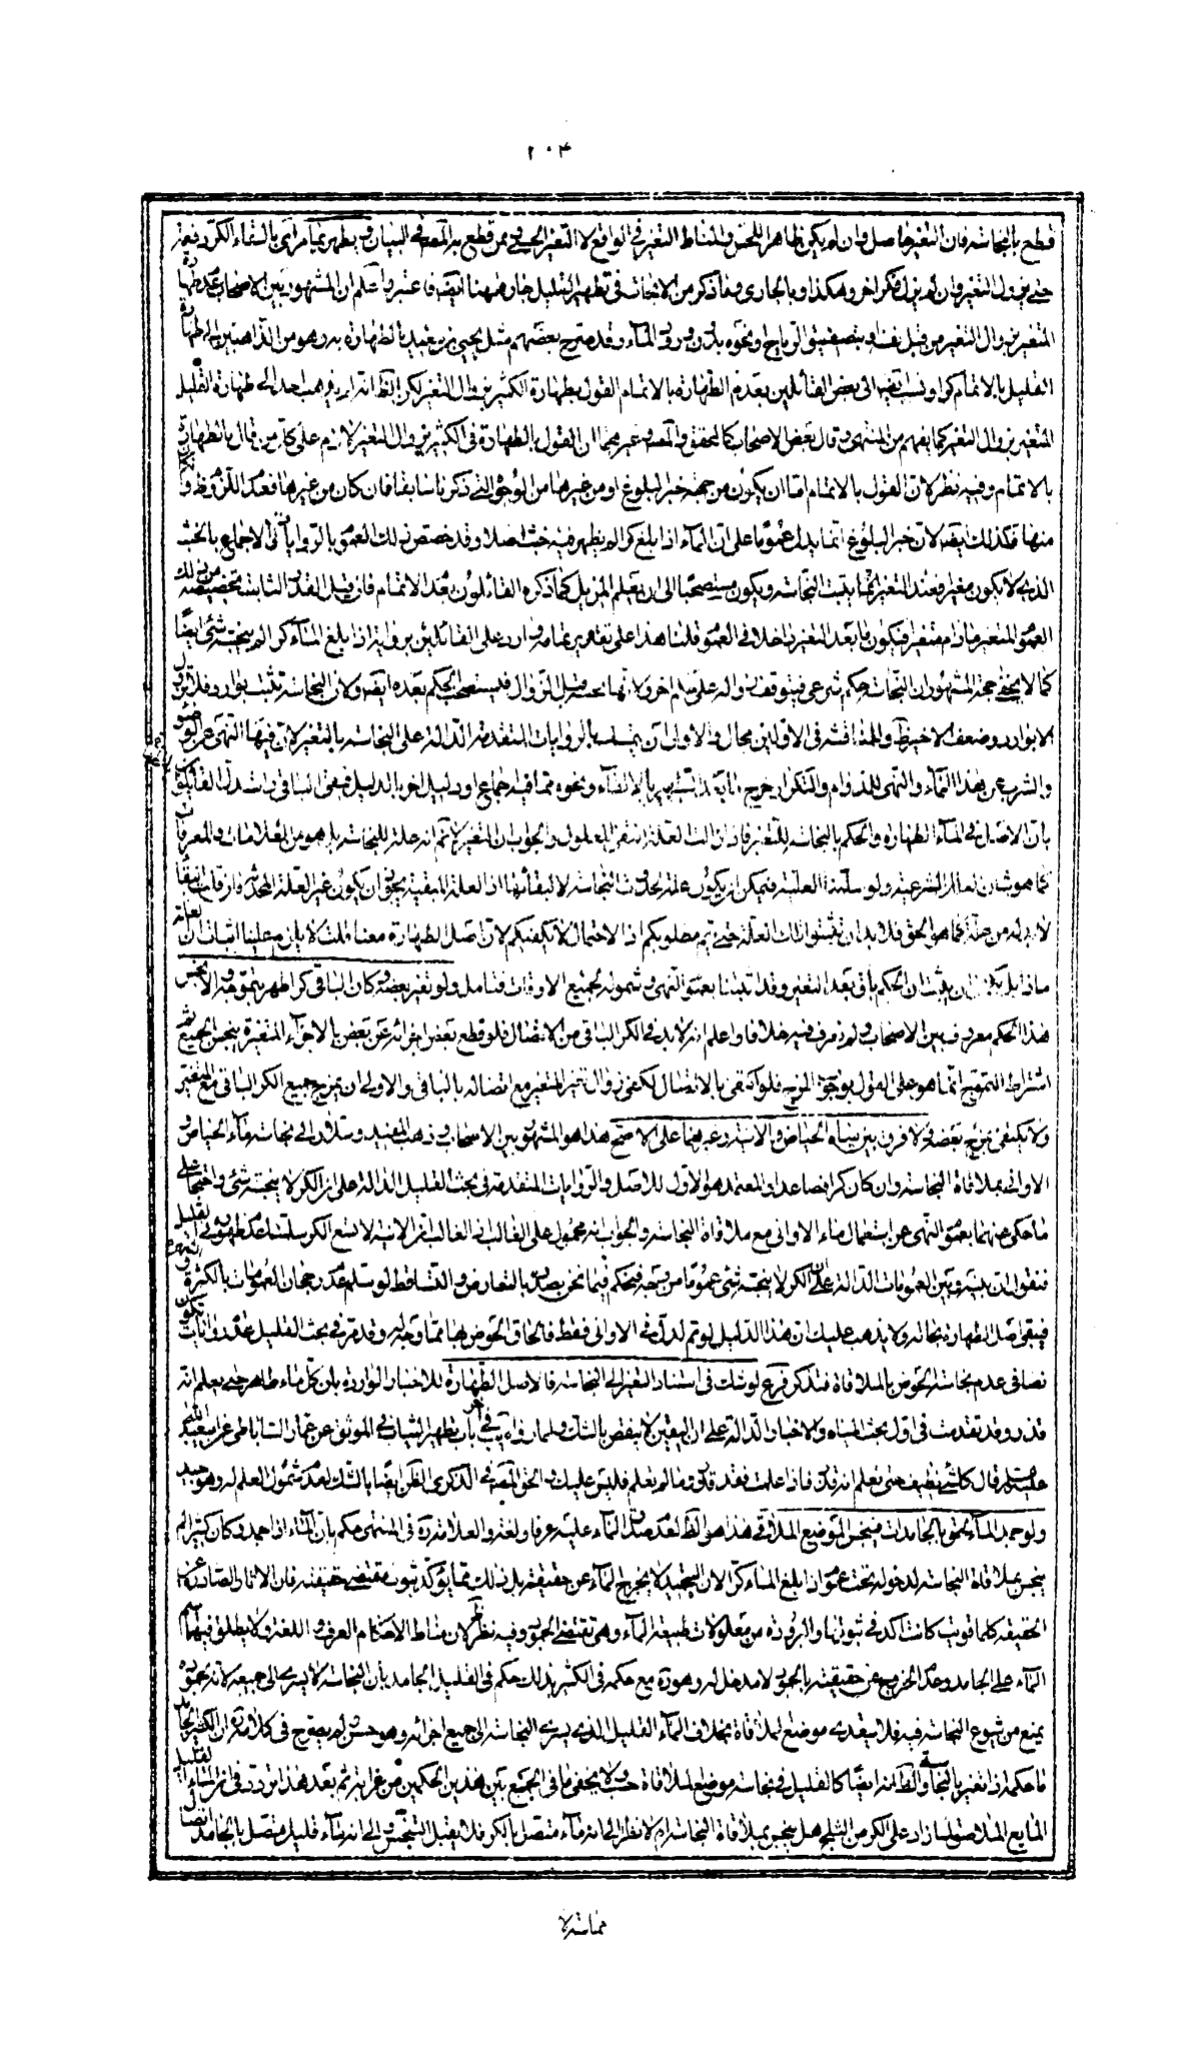 ٢٠٣
قطع بالنجاسة فان التغير حاصل وان لم يكن ظاهرا للحس والمناط التغير في الواقع لا التغير الحسي وممن قطع به المصنف في البيان ويطهر بما مر اي بالقاء الكر دفعة
حتى يزول التغير وان لم يزل فكر اخر وهكذا وبالجاري وما ذكر من الابحاث في تطهير القليل جار ههنا ايضا فاعتبر واعلم ان المشهور بين الاصحاب عدم طهارة
المتغير بزوال التغير من قبل نفسه او بتصفيق الرياح او نحوه بدون ورود الماء وقد صرح بعضهم مثل يحيى بن سعيد بالطهارة به وهو من الذاهبين الى طهارة
القليل بالاتمام كرا ونسب ايضا الى بعض القائلين بعدم الطهارة بالاتمام القول بطهارة الكثير بزوال التغير لكن الظ انه لم يذهب احد الى طهارة القليل
المتغير بزوال التغير كما يفهم من المنتهى وقال بعض الاصحاب كالمحقق والمصنف وغيرهما ان القول بالطهارة في الكثير بزوال التغير لازم على كل من قال بالطهارة
بالاتمام وفيه نظر لان القول بالاتمام اما ان يكون من جهة خبر البلوغ او من غيرها من الوجوه التي ذكرنا سابقا فان كان من غيرها فعدم اللزوم ظ وان كان
منها فكذلك ايضا لان خبر البلوغ انما يدل عموما على ان الماء اذا بلغ كرا لم يظهر فيه خبث اصلا وقد خصص ذلك العموم بالروايات والاجماع بالخبث
الذي لا يكون مغيرا فعند التغير انما يثبت النجاسة ويكون مستصحبا الى ان يعلم المزيل كما ذكره القائلون بعدم الاتمام فان قيل القدر الثابت تخصيصه من ذلك
العموم المتغير ما دام متغيرا فيكون ما بعد التغير داخلا في العموم قلنا هذا على تقدير تمامه وارد على القائلين برواية اذا بلغ الماء كرا لم ينجسه شئ ايضا
كما لا يخفى حجة المشهور ان النجاسة حكم شرعي فيتوقف زواله على حكم اخر ولانها نجسة قبل الزوال فليستصحب الحكم بعده ايضا ولان النجاسة تثبت بوارد فلا تزول
الا بوارد وضعف الاخير ظ وللمناقشة في الاولين مجال والاولى ان يتمسك بالروايات المتقدمة الدالة على النجاسة بالتغير لان فيها النهي عن الوضوء
والشرب من هذا الماء والنهي للدوام والتكرار خرج ما بعد التطهير بالالقاء ونحوه مما فيه اجماع او دليل اخر بالدليل فبقي الباقي واستدل القائلون
بان الاصل في الماء الطهارة والحكم بالنجاسة للتغير فاذا زالت العلة انتفى المعلول والجواب ان التغير لا نم انه علة للنجاسة بل هو من العلامات والمعرفات
كما هو شان العلل الشرعية ولو سلمنا العلية فيمكن ان يكون علة لحدوث النجاسة لا لبقائها اذ العلة المبقية يجوز ان يكون غير العلة المحدثة
هذا الحكم معروف بين الاصحاب ولم نعرف فيه خلافا واعلم انه لا بد في الكر الباقي من الاتصال فلو قطع بعض اجزائه عن بعض بالاجزاء المتغيرة ينجس الجميع ثم
اشتراط التمويج انما هو على القول بوجوب المزج فلو اكتفى بالاتصال لكفى زوال تغير المتغير مع اتصاله بالباقي والاولى ان يمزج جميع الكر الباقي مع المتغير
ولا يكتفى بمزج بعضه ولا فرق بين مياه الحياض والانية وغيرهما على الاصح هذا هو المشهور بين الاصحاب وذهب المفيد وسلار الى نجاسة ماء الحياض و
الاواني بملاقاة النجاسة وان كان كرا فصاعدا والمعتمد هو الاول للاصل والروايات المتقدمة في بحث القليل الدالة على ان الكر لا ينجسه شئ واحتجاجهما على
ما حكي عنهما بعموم النهي عن استعمال ماء الاواني مع ملاقاة النجاسة والجواب انه محمول على الغالب اذ الغالب ان الانية لا تسع الكر سلمنا عدم ظهوره في القليل
فنقول ان بينه وبين العمومات الدالة على ان الكر لا ينجسه شئ عموما من وجه فيحكم فيما نحن بصدده بالتعارض والتساقط لو سلم عدم رجحان العمومات بالكثرة
فيبقى اصل الطهارة بحاله ولا يذهب عليك ان هذا الدليل لو تم لدل في الاواني فقط فالحاق الحوض بها مما لا وجه له وقد مر في بحث القليل عدة روايات
نصا في عدم نجاسة الحوض بالملاقاة فتذكر فرع لو شك في استناد التغير الى النجاسة فالاصل الطهارة للاخبار الواردة بان كل ماء طاهر حتى يعلم انه
قذر وقد تقدمت في اول بحث المياه والاخبار الدالة على ان اليقين لا ينقض بالشك ولما رواه يب في باب تطهير الثياب في الموثق عن عمار الساباطي عن ابي عبد الله
عليه السلام قال كل شئ نظيف حتى تعلم انه قذر فاذا علمت فقد قذر وما لم تعلم فليس عليك والحق المصنف في الذكرى الظن ايضا بالشك لعدم شمول العلم له وهو جيد
ولو جمد الماء لحق بالجامدات فينجس الموضع الملاقي هذا هو الظ لعدم صدق الماء عليه عرفا ولغة والعلامة ره في المنتهى حكم بان الماء اذا جمد وكان كثيرا لم
ينجس بملاقاة النجاسة لدخوله تحت عموم اذا بلغ الماء كرا لان التجميد لا يخرج الماء عن حقيقته بل ذلك مما يؤكد ثبوت مقتضى حقيقته فان الاثار الصادرة عن
الحقيقة كلما قويت كانت اكد في ثبوتها والبرودة من معلولات طبيعة الماء وهي تقتضي الجمود وفيه نظر لان مناط الاحكام العرف واللغة ولا يطلق فيهما اسم
الماء على الجامد وعدم الخروج عن حقيقته بالجمود لا مدخل له وهو ره مع حكمه في الكثير بذلك حكم في القليل الجامد بان النجاسة لا يسري الى جميعه لانه بجموده
يمنع من شيوع النجاسة فيه فلا يتعدى موضع الملاقاة بخلاف الماء القليل الذي يسري النجاسة الى جميع اجزائه وهو حسن
ولا يخفى ما في الجمع بين هذين الحكمين من غرابة ثم بعد هذا تردد في ان الماء القليل
المايع الملاصق لما زاد على الكر من الثلج هل ينجس بملاقاة النجاسة ام لا نظرا الى انه ماء متصل بالكر فلا يقبل التنجيس والى انه ماء قليل متصل بالجامد اتصال
مماسة لا